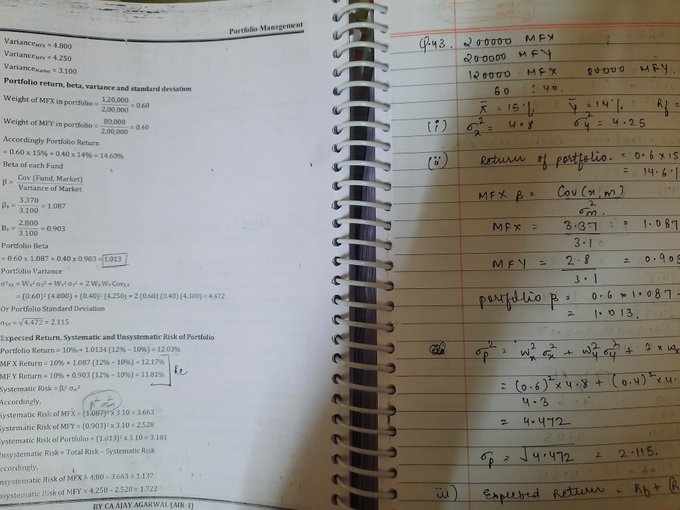 Portfolio Management
Variance MFX = 4.800
Variance MFY = 4.250
Variance Market = 3.100
Portfolio return, beta, variance and standard deviation
Weight of MFX in portfolio = 1,20,000 / 2,00,000 = 0.60
Weight of MFY in portfolio = 80,000 / 2,00,000 = 0.40
Accordingly Portfolio Return
= 0.60 x 15% + 0.40 x 14% = 14.60%
Beta of each Fund
β = Cov (Fund, Market) / Variance of Market
βx = 3.370 / 3.100 = 1.087
By = 2.800 / 3.100 = 0.903
Portfolio Beta
= 0.60 x 1.087 + 0.40 x 0.903 = 1.013
Portfolio Variance
σ²XY = WX² σX² + WY² σY² + 2 WX WY CovXY
= (0.60)² (4.800) + (0.40)² (4.250) + 2 (0.60) (0.40) (4.300) = 4.472
Or Portfolio Standard Deviation
σXY = √4.472 = 2.115
Expected Return, Systematic and Unsystematic Risk of Portfolio
Portfolio Return = 10% + 1.0134 (12% – 10%) = 12.03%
MF X Return = 10% + 1.087 (12% – 10%) = 12.17%
MF Y Return = 10% + 0.903 (12% – 10%) = 11.81%
Systematic Risk = β² σm²
Accordingly,
Systematic Risk of MFX = (1.087)² x 3.10 = 3.663
Systematic Risk of MFY = (0.903)² x 3.10 = 2.528
Systematic Risk of Portfolio = (1.013)² x 3.10 = 3.181
Unsystematic Risk = Total Risk – Systematic Risk
Accordingly,
Unsystematic Risk of MFX = 4.80 - 3.663 = 1.137
Unsystematic Risk of MFY = 4.250 - 2.528 = 1.722
BY CA AJAY AGARWAL (AIR-1)
Q.43. 200000 MFX
200000 MFY
120000 MFX 80000 MFY.
60 : 40.
x̄ = 15% ȳ = 14% Rf =
(i) σx² = 4.8 σy² = 4.25
(ii) Return of portfolio. = 0.6 x 15
= 14.6%
MFX β = Cov (x, m) / σ²m.
MFX = 3.37 / 3.1 = 1.087
MFY = 2.8 / 3.1 = 0.903
portfolio β = 0.6 x 1.087
= 1.013.
σp² = wx² σx² + wy² σy² + 2 x
= (0.6)² x 4.8 + (0.4)² x 4.
4.3
= 4.472
σp = √4.472 = 2.115.
iii) Expected Return = Rf +